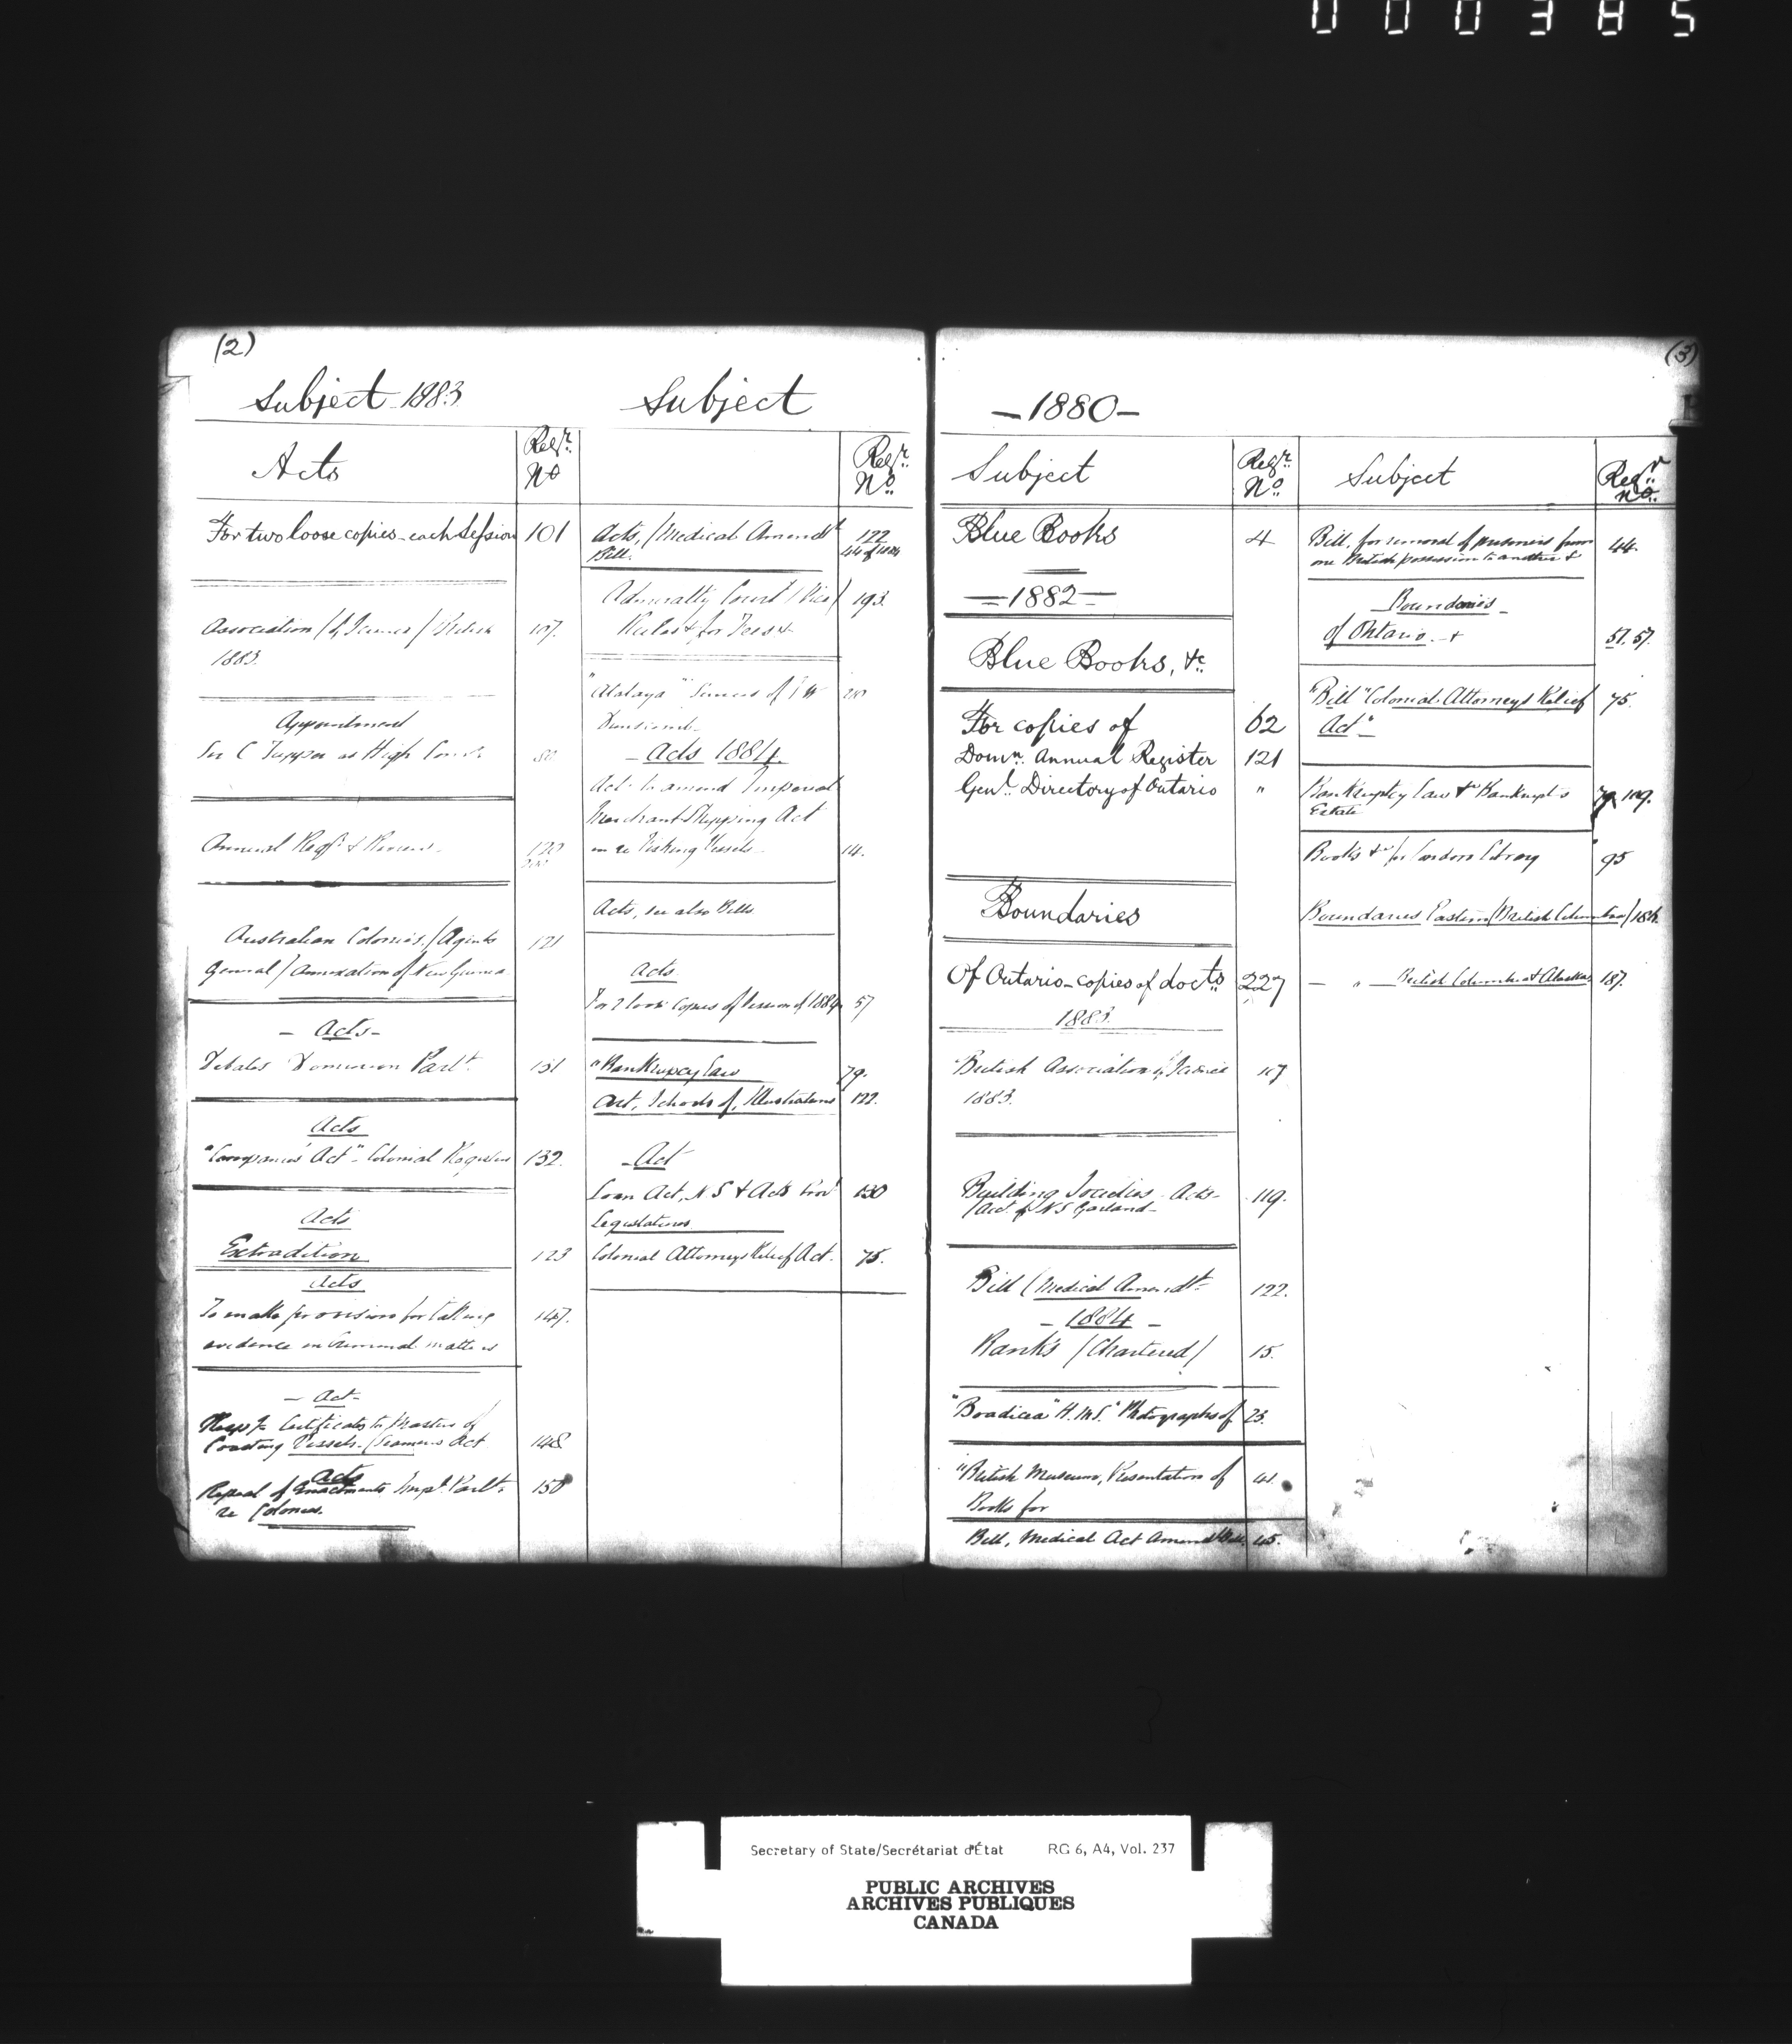 000385
(2)
Subject 1883
Acts
Regr. No
For two loose copies each Session 101
Association / of Science / British 107.
1883.
Appointment
Sir C Tupper as High Comr. 80
Annual Regr. & Review 120
200
Australian Colonies / Agents 121
General / Annexation of New Guinea
- Acts -
Debates Dominion Parlt. 131
Acts
"Companies Act" - Colonial Registers 132.
Acts
Extradition 123
Acts
To make provision for taking 147.
evidence in Criminal matters
- Act -
Certificates to Masters of
Coasting Vessels. / Seamens Act 148
Acts
Repeal of Enactments Impl. Parlt. 150
re Colonies.
Subject
Regr. No.
Acts, / Medical Amendt 122
Bill. 44 of 1884
Admiralty Court / Vice / 193.
Rules & for Fees &
"Atalaya" Services of
- Acts 1884.
Act to amend Imperial
Merchant Shipping Act
in re Fishing Vessels 14.
Acts, see also Bills
Acts
For 2 loose Copies of Session of 1884 57
"Bankrupcy Law 79.
Art, Schools of, Illustrations 122.
- Act
Loan Act, N S & Acts Provl 130
Legislatures.
Colonial Attorneys Relief Act. 75.
(3)
- 1880 -
Subject
Regr. No.
Blue Books 4
- 1882 -
Blue Books, &c.
For copies of 62
Domn. Annual Register 121
Genl. Directory of Ontario "
Boundaries
Of Ontario - copies of docts. 227
1883.
British Association of Science 107
1883.
Building Societies - Acts - 119.
N S Garland -
Bill (Medical Amendt. 122.
- 1884 -
Banks / Chartered / 15.
"Boadicea" H.M.S. Photographs of 23.
"British Museum, Presentation of 41.
Books for
Bill, Medical Act Amendt 45.
Subject
Regr. No.
Bill, for removal of prisoners from 44.
one British possession to another &
Boundaries -
of Ontario - & 51. 57.
"Bill" Colonial Attorneys Relief 75.
Act" -
Bankruptcy Law & Bankrupt's 79 109.
Estate
Books &c for London Library 95
Boundaries Eastern / British Columbia / 186.
- " - British Columbia & Alaska 187.
Secretary of State/Secrétariat d'État RG 6, A4, Vol. 237
PUBLIC ARCHIVES
ARCHIVES PUBLIQUES
CANADA